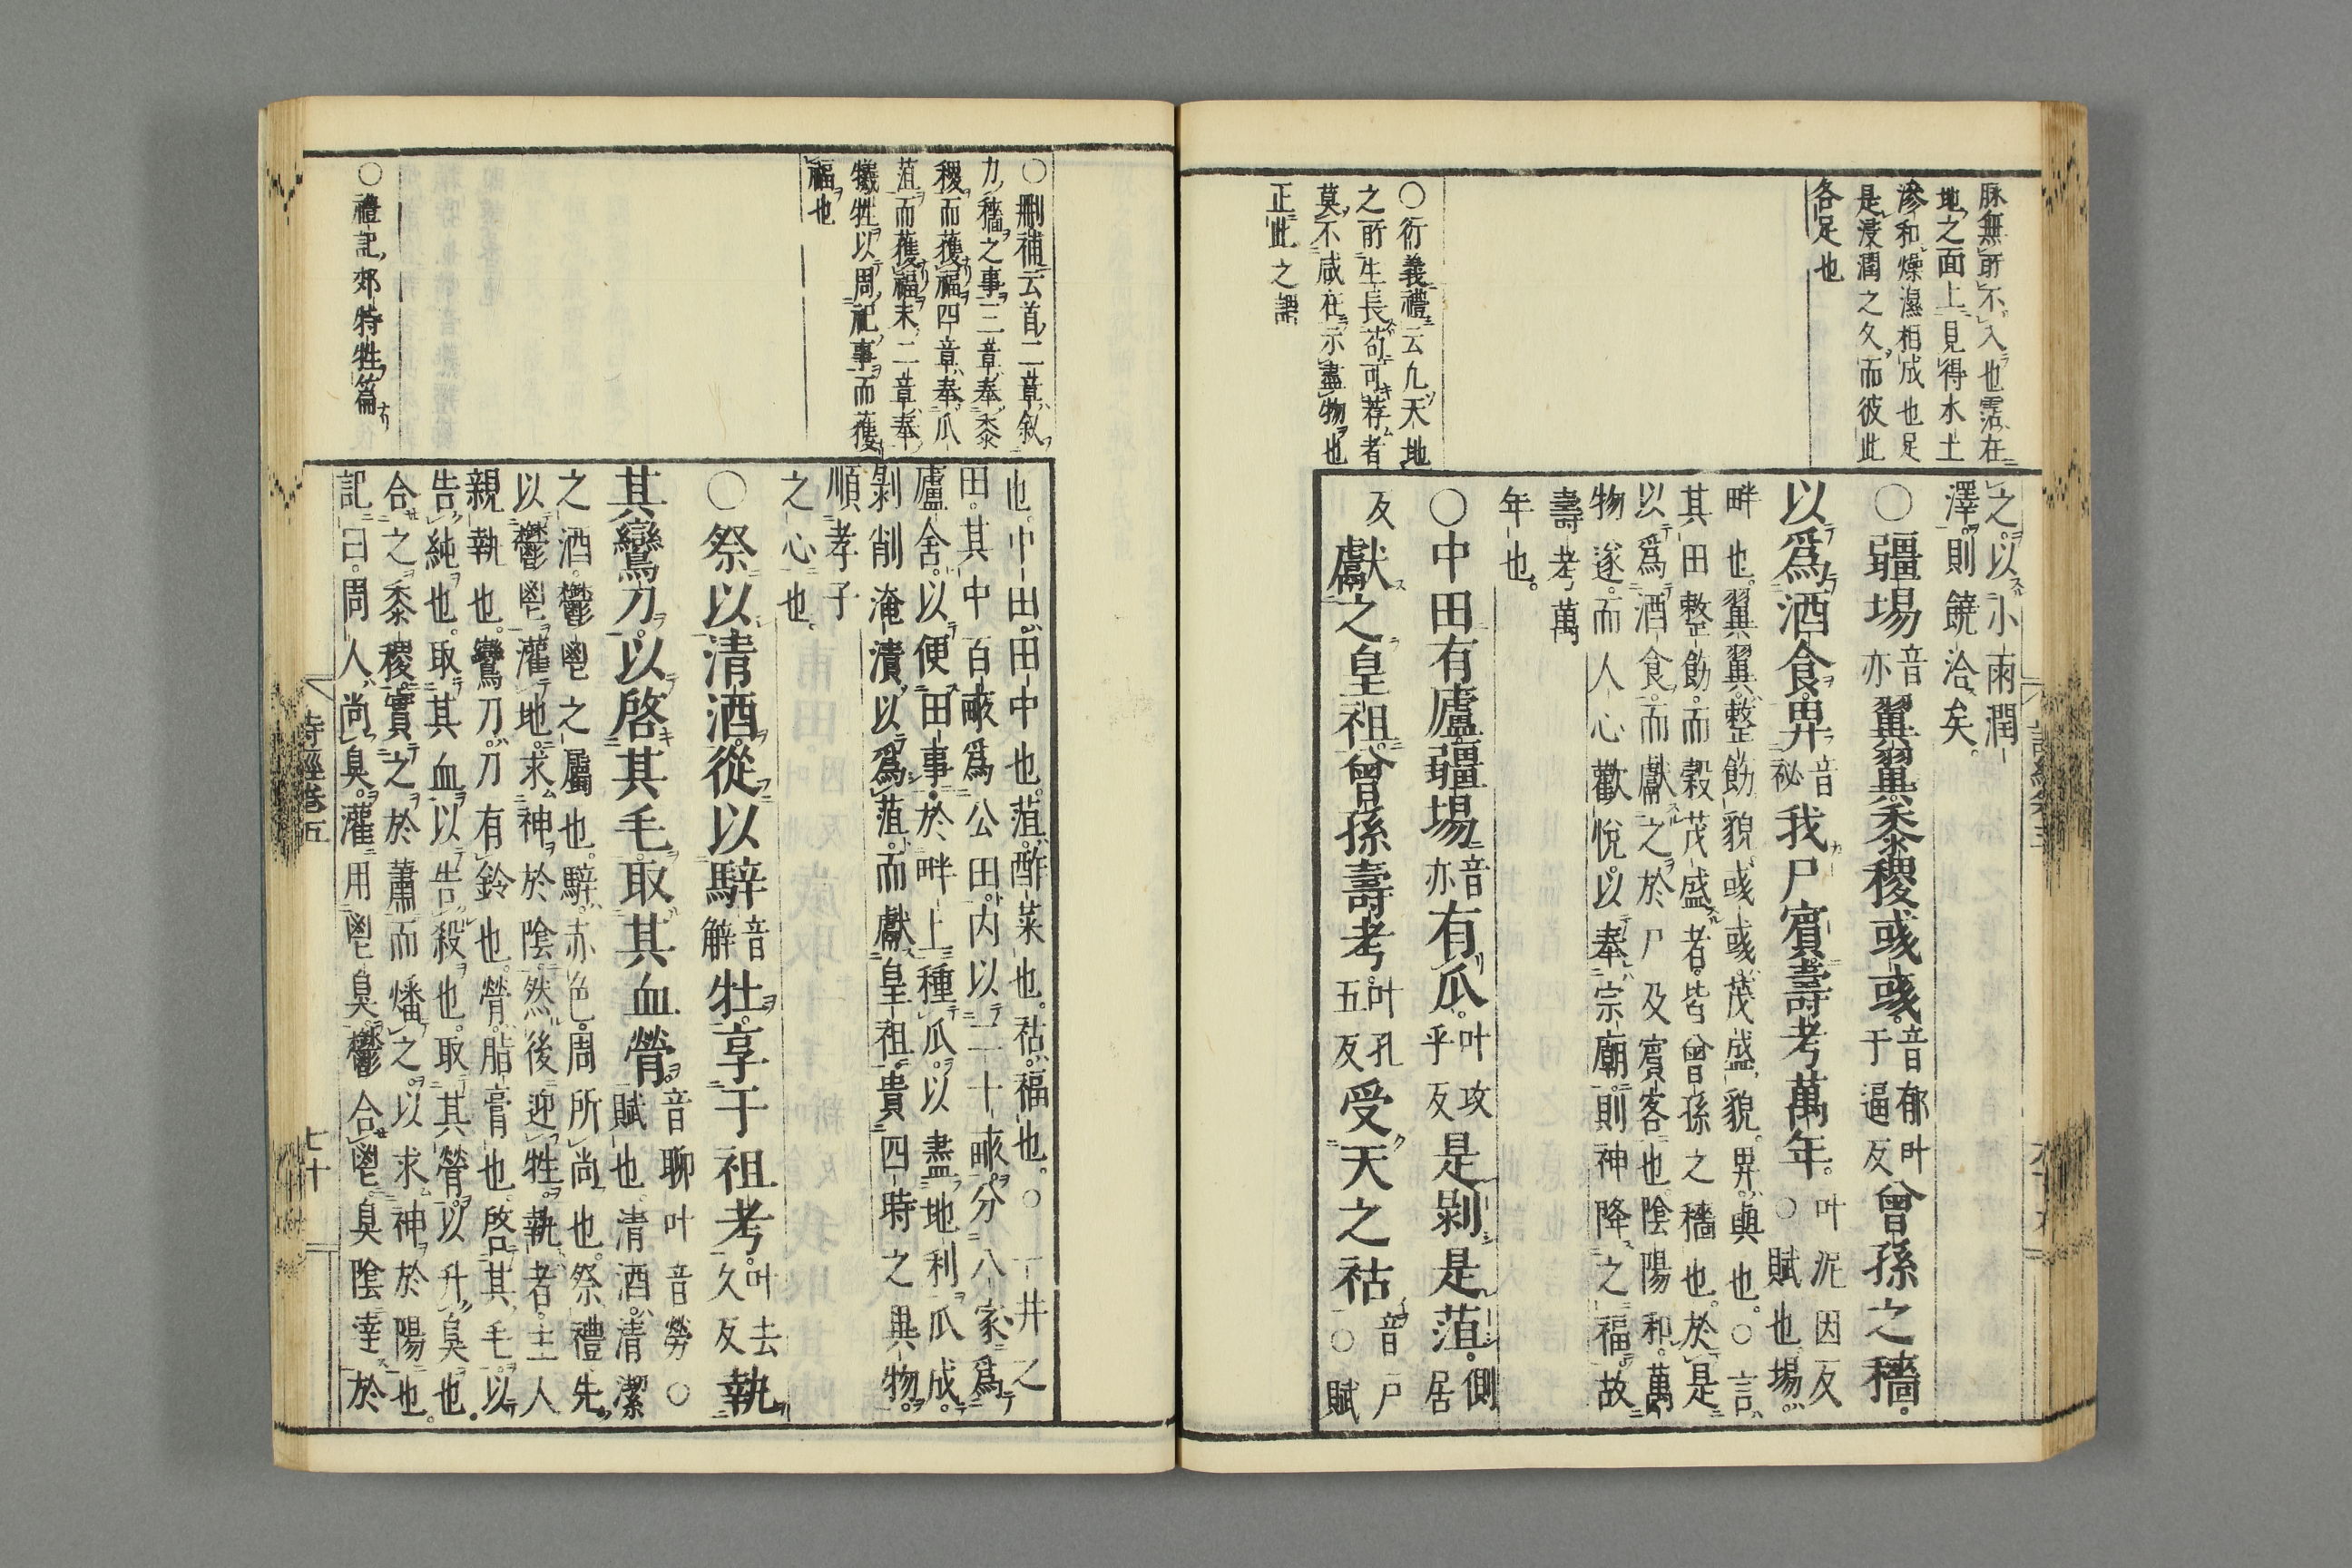 脉無所不入也霑在
地之面上見得水土
滲和燥濕相成也足
是浸潤之久而彼此
各足也
○衍義禮云凡天地
之所生長苟可荐者
莫不咸在示盡物也
正此之謂
之以小雨潤
澤則饒洽矣
○疆埸音亦翼翼黍稷彧彧音郁叶于逼反曾孫之穡
以爲酒食畀音祕我尸賓壽考萬年叶泥因反○賦也埸
畔也翼翼整飭貌彧彧茂盛貌畀與也○言
其田整飭而穀茂盛者皆曾孫之穡也於是
以爲酒食而獻之於尸及賓客也陰陽和萬
物遂而人心歡悅以奉宗廟則神降之福故
壽考萬
年也
○中田有廬疆埸音亦有瓜叶攻乎反是剝是菹側居
反獻之皇祖曾孫壽考叶孔五反受天之祜音戶○賦
○刪補云首二章敘
力穡之事三章奉黍
稷而獲福四章奉瓜
菹而獲福末二章奉
犧牲以周祀事而獲
福也
○禮記郊特牲篇
也中田田中也菹酢菜也祜福也○一井之
田其中百畝爲公田内以二十畝分八家爲
廬舍以便田事於畔上種瓜以盡地利瓜成
剝削淹漬以爲菹而獻皇祖貴四時之異物
順孝子
之心也
○祭以清酒從以騂音觧牡享于祖考叶去久反執
其鸞刀以啓其毛取其血膋音聊叶音勞○賦也清酒清潔
之酒鬱鬯之屬也騂赤色周所尚也祭禮先
以鬱鬯灌地求神於陰然後迎牲執者主人
親執也鸞刀刀有鈴也膋脂膏也啓其毛以
告純也取其血以告殺也取其膋以升臭也
合之黍稷實之於蕭而燔之以求神於陽也
記曰周人尚臭灌用鬯臭鬱合鬯臭陰達於
詩經卷五
七十